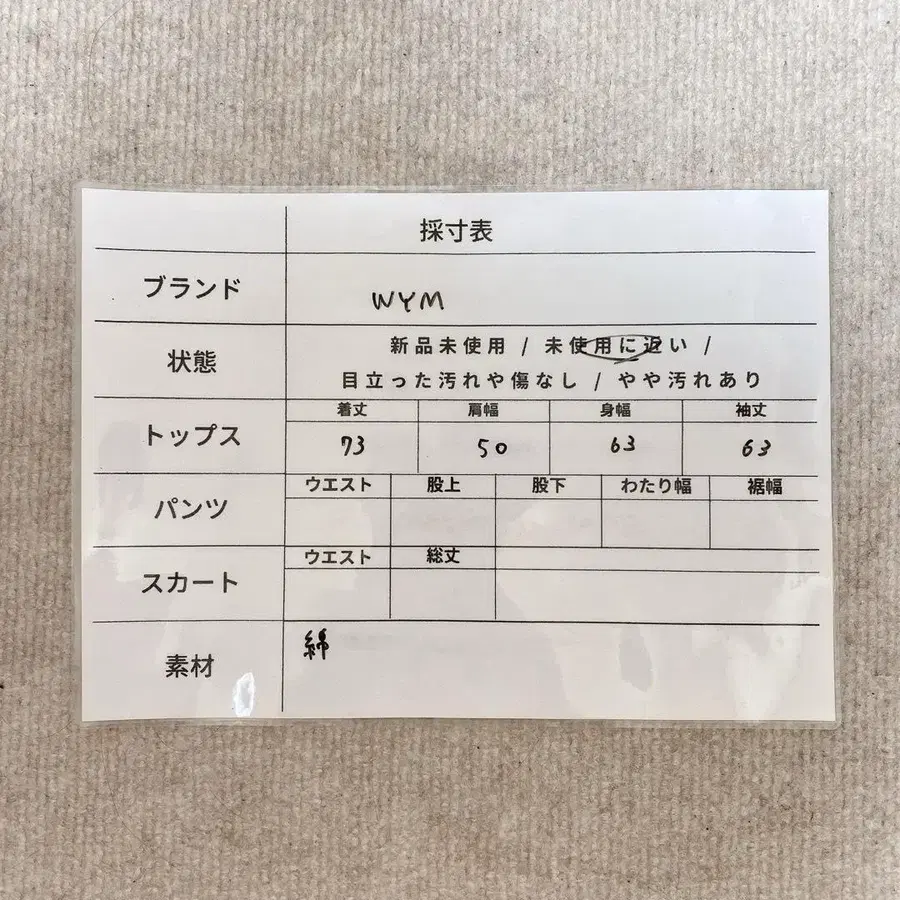 採寸表
ブランド WYM
状態 新品未使用 / 未使用に近い /
目立った汚れや傷なし / やや汚れあり
トップス 着丈 肩幅 身幅 袖丈
73 50 63 63
パンツ ウエスト 股上 股下 わたり幅 裾幅
スカート ウエスト 総丈
素材 綿